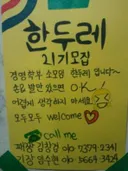 한두레
21기모집
경영학부 소모임 한두레 입니다~
손을 발만 있으면 OK!
어렵게 생각하지 마세요
모두모두 welcome
call me
패장 김창겸 010 7379 2341
기장 임수현 010 8664 3424